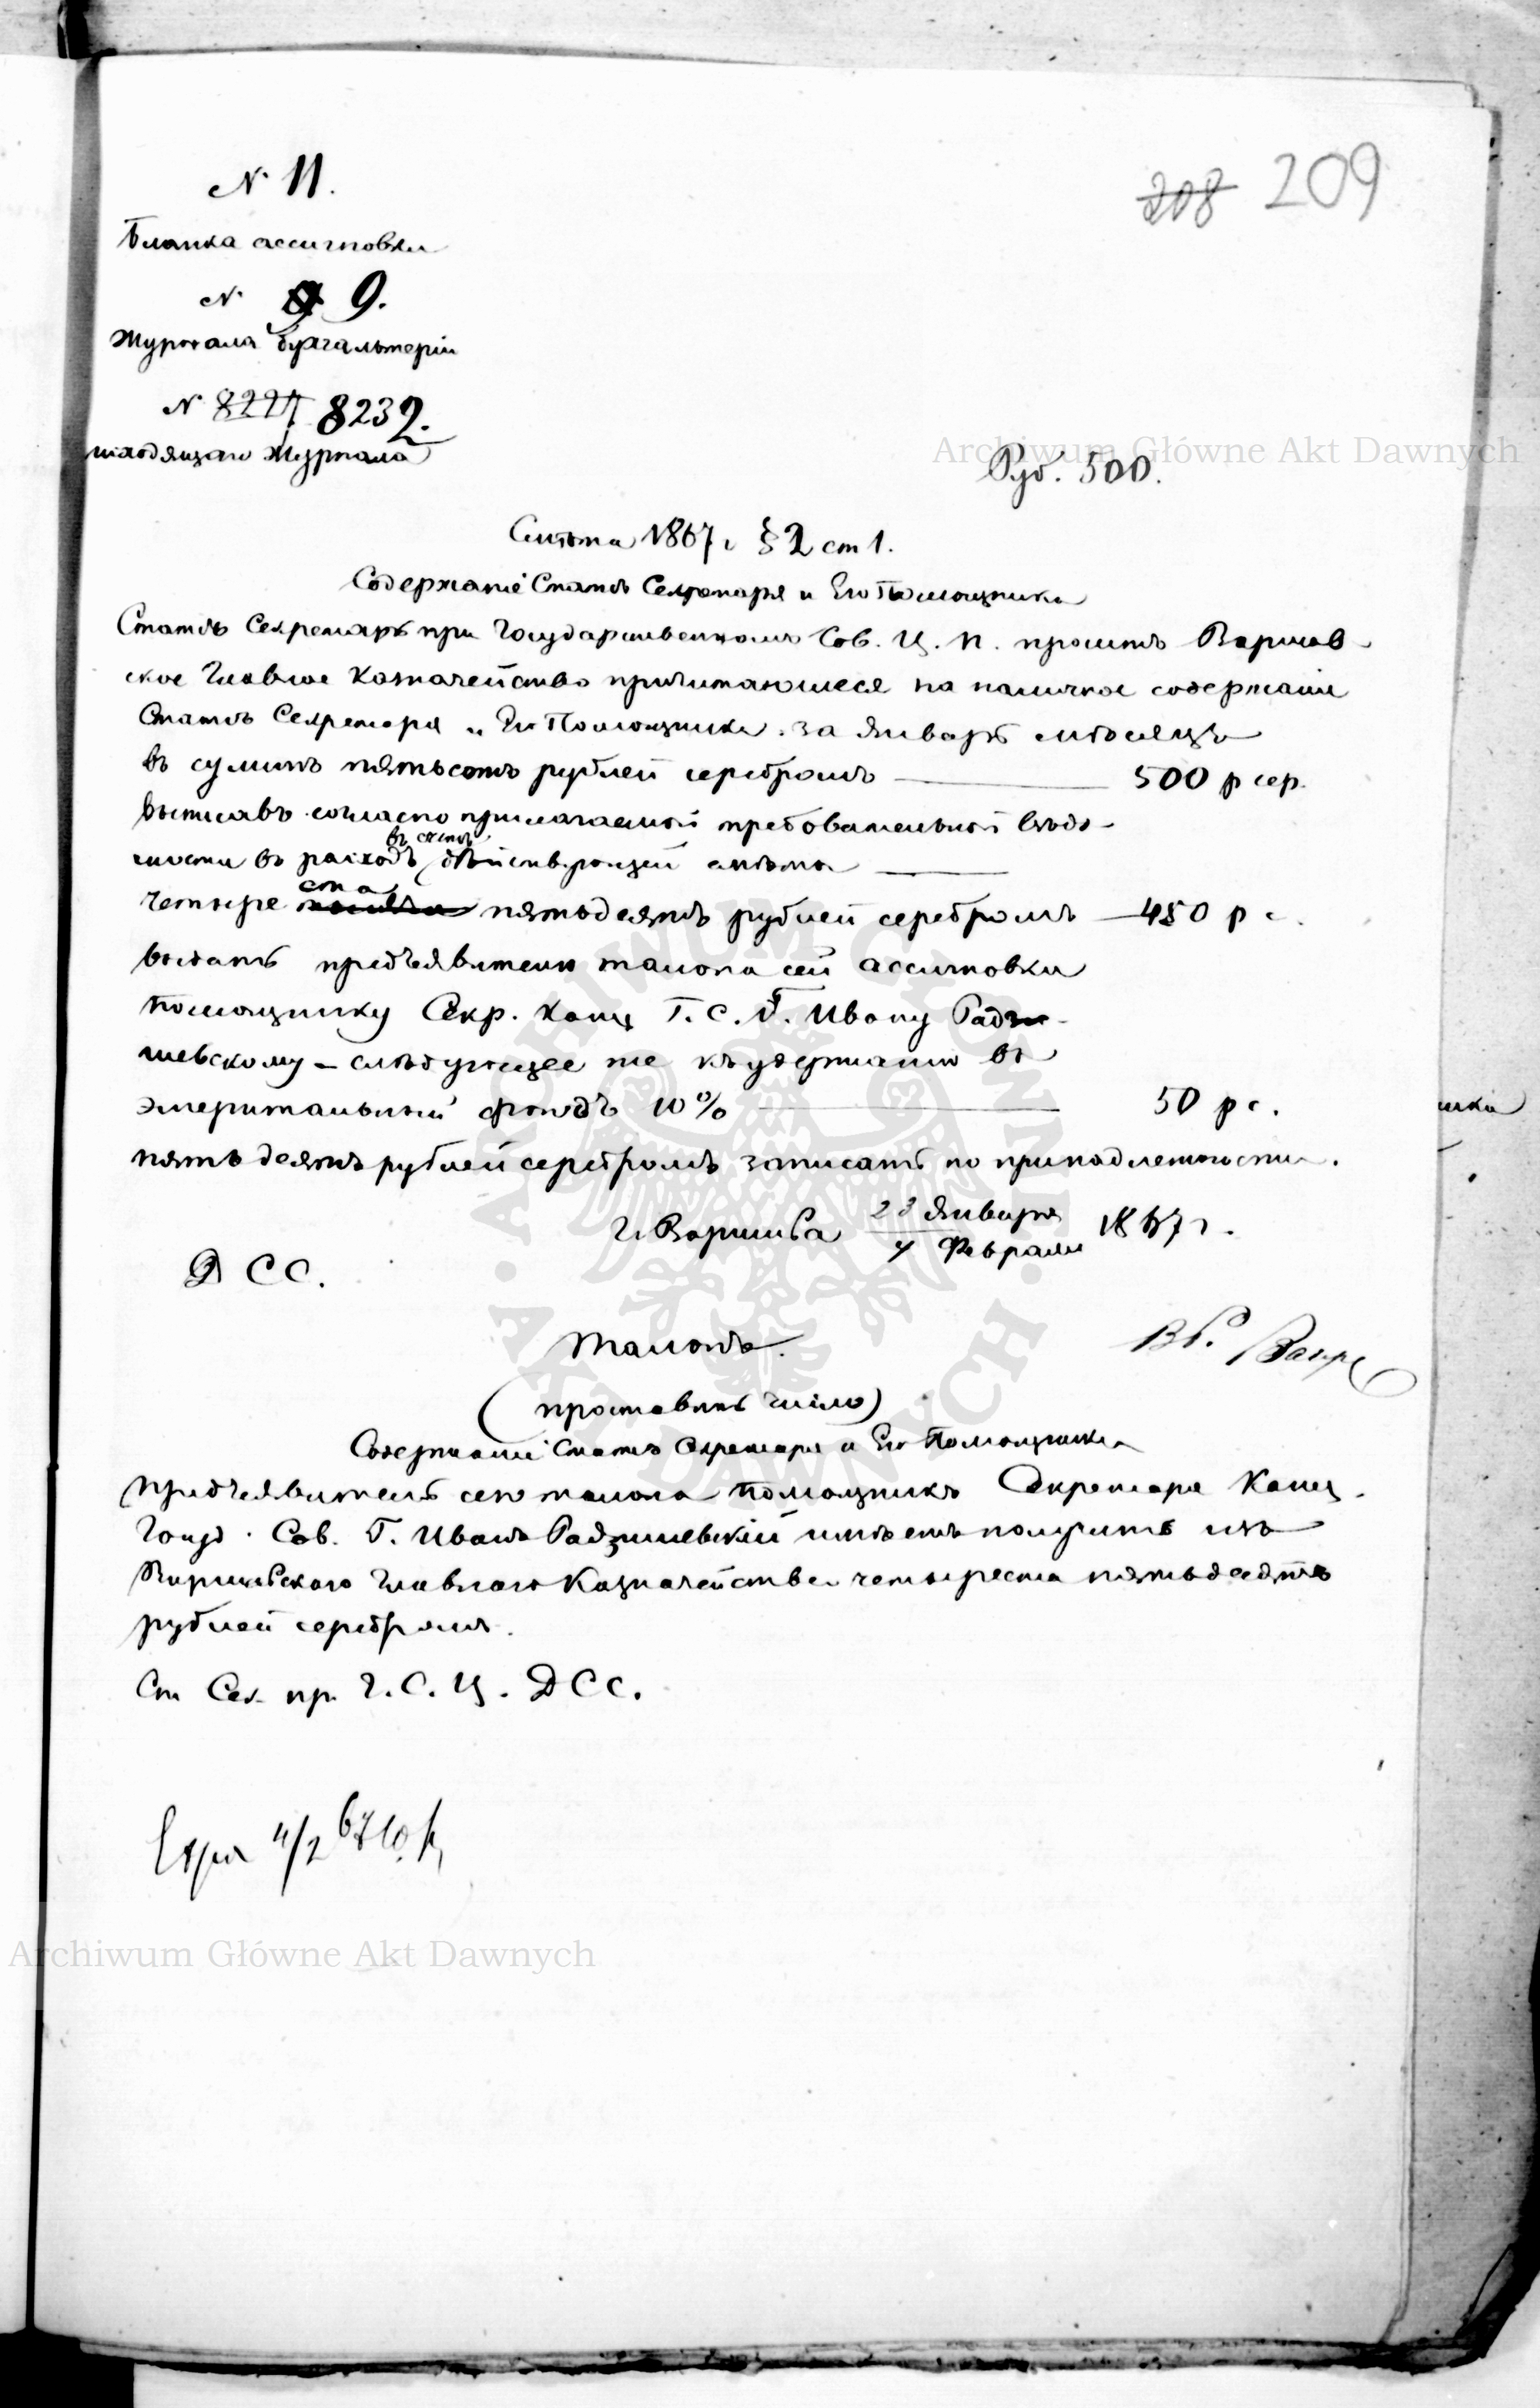 208 209
N 11.
Бланка ассигновки
N 9.
Журнала Бухгальтеріи
N 8227 8232.
исходящаго Журнала
Archiwum Główne Akt Dawnych
Руб. 500.
Смѣта 1867 г § 2 ст 1.
Содержаніе Статсъ Секретаря и Его Помощника
Статсъ Секретарь при Государственномъ Сов. Ц. П. проситъ Варшав-
ское Главное Казначейство причитающіеся на наличное содержаніе
Статсъ Секретаря и Его Помощника за Январь мѣсяцъ
въ суммѣ пятьсотъ рублей серебромъ — 500 р сер.
выписавъ согласно прилагаемой требовательной вѣдо-
мости въ расходъ въ счетъ дѣйствующей смѣты —
четыре ста пятьдесятъ рублей серебромъ — 450 р с.
выдать предъявителю талона сей ассигновки
Помощнику Секр. Канц Г. С. Г. Ивану Радзи-
шевскому – слѣдующее же къ удержанію въ
эмеритальный фондъ 10% — 50 р с.
пять десятъ рублей серебромъ записать по принадлежности.
г. Варшава 23 Января / 4 Февраля 1867 г.
Д С С.
Талонъ.
(проставить число)
Содержаніе Статсъ Секретаря и Его Помощника
Предъявитель сего талона Помощникъ Секретаря Канц.
Госуд. Сов. Г. Иванъ Радзишевскій имѣетъ получить изъ
Варшавскаго Главнаго Казначейства четыреста пятьдесятъ
рублей серебромъ.
Ст Сек. пр. Г. С. Ц. Д С С.
4/2 67
Archiwum Główne Akt Dawnych